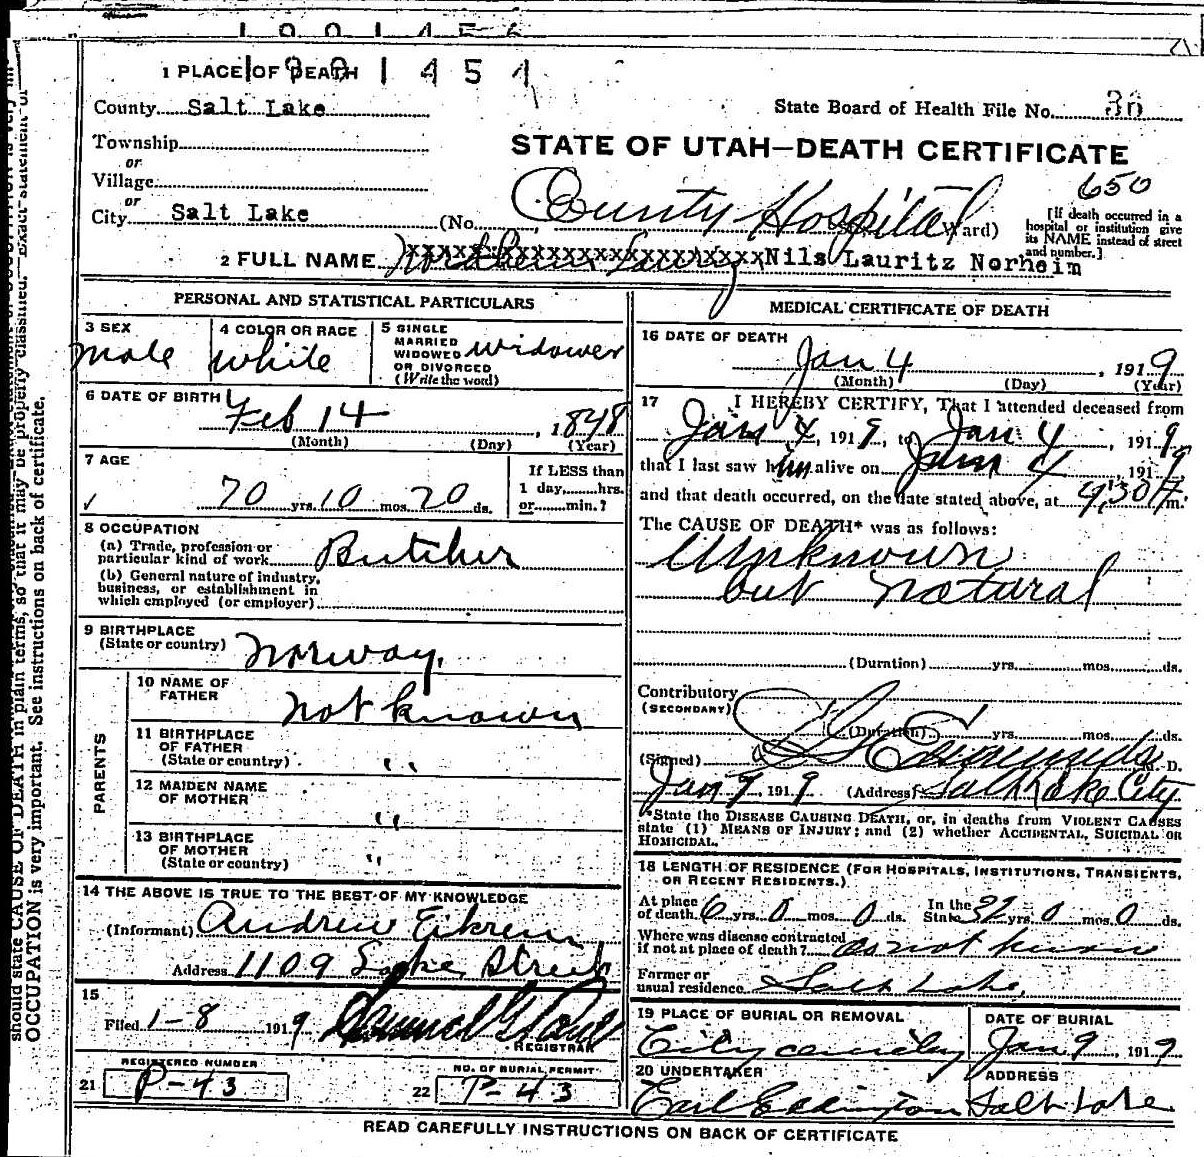 1901454
1 PLACE OF DEATH
County Salt Lake
State Board of Health File No. 36
Township
or
Village
or
City Salt Lake
STATE OF UTAH—DEATH CERTIFICATE
650
(No. County Hospital Ward)
[If death occurred in a
hospital or institution give
its NAME instead of street
and number.]
2 FULL NAME Nils Lauritz Norheim
PERSONAL AND STATISTICAL PARTICULARS
3 SEX
male
4 COLOR OR RACE
White
5 SINGLE
MARRIED
WIDOWED
OR DIVORCED
(Write the word)
Widower
6 DATE OF BIRTH
Feb 14, 1848
(Month) (Day) (Year)
7 AGE
70 yrs. 10 mos. 20 ds.
If LESS than
1 day,......hrs.
or......min.?
8 OCCUPATION
(a) Trade, profession or
particular kind of work Butcher
(b) General nature of industry,
business, or establishment in
which employed (or employer)
9 BIRTHPLACE
(State or country) Norway.
PARENTS
10 NAME OF
FATHER
not known
11 BIRTHPLACE
OF FATHER
(State or country) "
12 MAIDEN NAME
OF MOTHER
"
13 BIRTHPLACE
OF MOTHER
(State or country) "
14 THE ABOVE IS TRUE TO THE BEST OF MY KNOWLEDGE
(Informant) Andrew Eikrem
Address 1109 Street
15
Filed 1-8 1919
REGISTRAR
REGISTERED NUMBER
21 P-43
NO. OF BURIAL PERMIT
22 P-43
MEDICAL CERTIFICATE OF DEATH
16 DATE OF DEATH
Jan 4, 1919
(Month) (Day) (Year)
17 I HEREBY CERTIFY, That I attended deceased from
Jan 4, 1919, to Jan 4 1919
that I last saw him alive on Jan 4 1919
and that death occurred, on the date stated above, at 9,30 P m.
The CAUSE OF DEATH* was as follows:
Unknown
but natural
(Duration) yrs. mos. ds.
Contributory
(SECONDARY)
(Duration) yrs. mos. ds.
(Signed) M. D.
Jan 9, 1919 (Address) Salt Lake City
*State the DISEASE CAUSING DEATH, or, in deaths from VIOLENT CAUSES
state (1) MEANS OF INJURY; and (2) whether ACCIDENTAL, SUICIDAL OR
HOMICIDAL.
18 LENGTH OF RESIDENCE (FOR HOSPITALS, INSTITUTIONS, TRANSIENTS,
OR RECENT RESIDENTS.)
At place
of death 6 yrs. 0 mos. 0 ds.
In the
State 32 yrs. 0 mos. 0 ds.
Where was disease contracted
if not at place of death? do not know
Former or
usual residence Salt Lake,
19 PLACE OF BURIAL OR REMOVAL
City cemetery
DATE OF BURIAL
Jan 9, 1919
20 UNDERTAKER
Earl Eddington
ADDRESS
Salt Lake
READ CAREFULLY INSTRUCTIONS ON BACK OF CERTIFICATE
should state CAUSE OF DEATH in plain terms, so that it may be properly classified. Exact statement of
OCCUPATION is very important. See instructions on back of certificate.